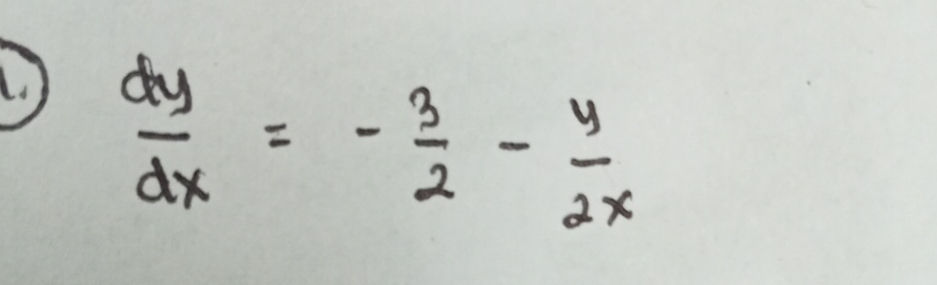 1. dy/dx = - 3/2 - y/2x